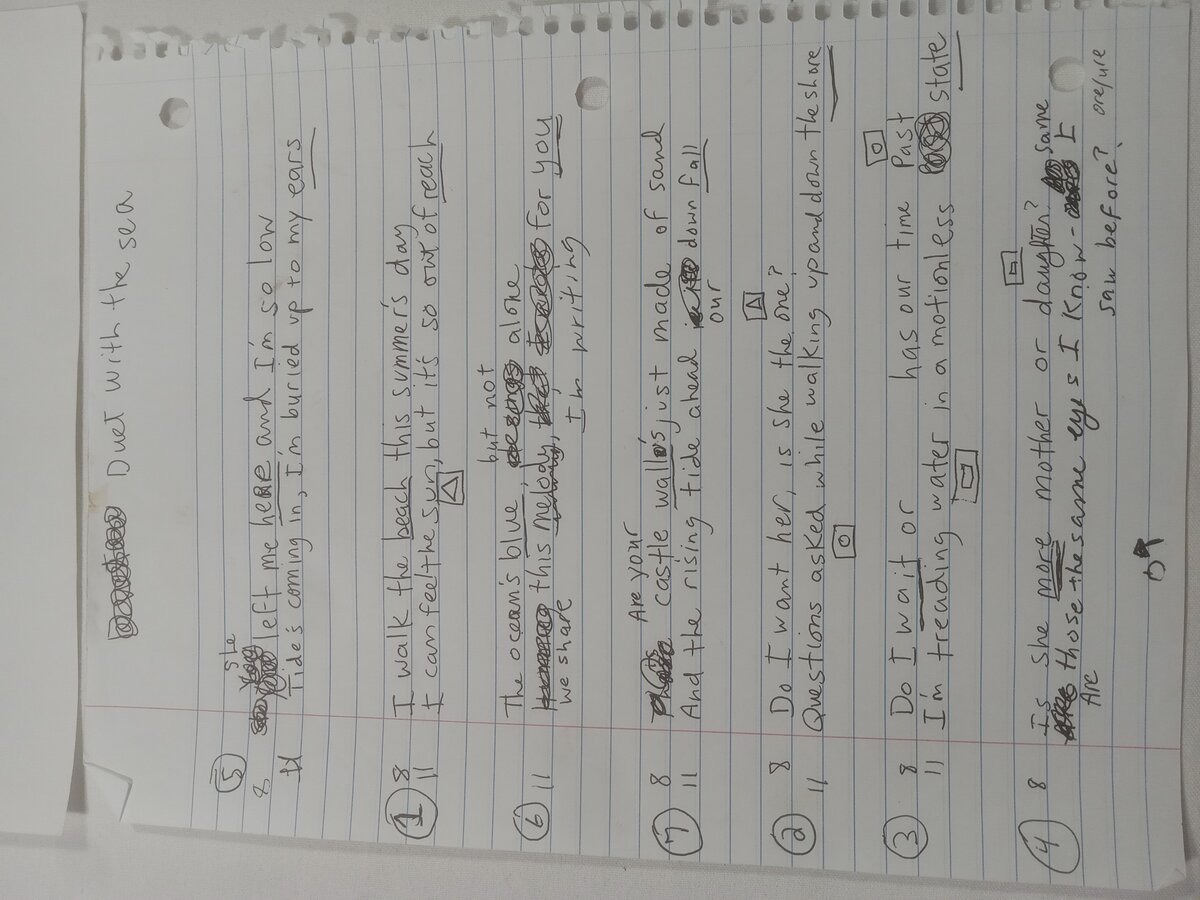 Duet with the sea
5
she
8 left me here and I'm so low
11 Tide's coming in, I'm buried up to my ears
1 8 I walk the beach this summer's day
11 I can feel the sun, but it's so out of reach
but not
The ocean's blue, alone
6 11 this melody, for you
we share I'm writing
Are your
8 castle walls just made of sand
7 11 And the rising tide ahead down fall
our
8 Do I want her, is she the one?
2 11 Questions asked while walking up and down the shore
8 Do I wait or has our time Past
3 11 I'm treading water in a motionless state
4 8 Is she more mother or daughter? same
those the same eyes I know - I
Are saw before?